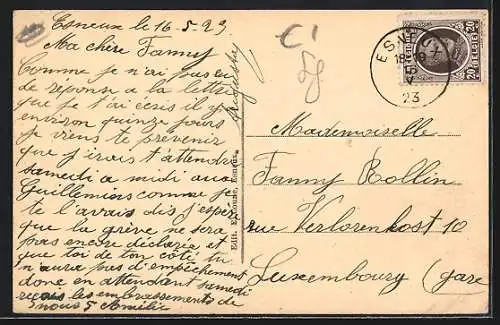 Esneux le 16-5-23
Ma chère Fanny
Comme je n'ai pas eu
de réponse a la lettre
que je t'ai écris il y a
environ quinze jours
je viens te prévenir
que j'irais t'attendre
samedi a midi aux
Guillemins comme je
te l'avais dis, j'espère
que la grève ne sera
pas encore déclarée et
que toi de ton côté tu
n'aura pas d'empêchement
donc en attendant samedi
reçois les embrassements de
nous 5 Amélie
Edit. Esneux.
ESNEUX
18-19
15
V
23
BELGIE
20 20
Mademoiselle
Fanny Rollin
rue Verlorenkost 10
Luxembourg (gare